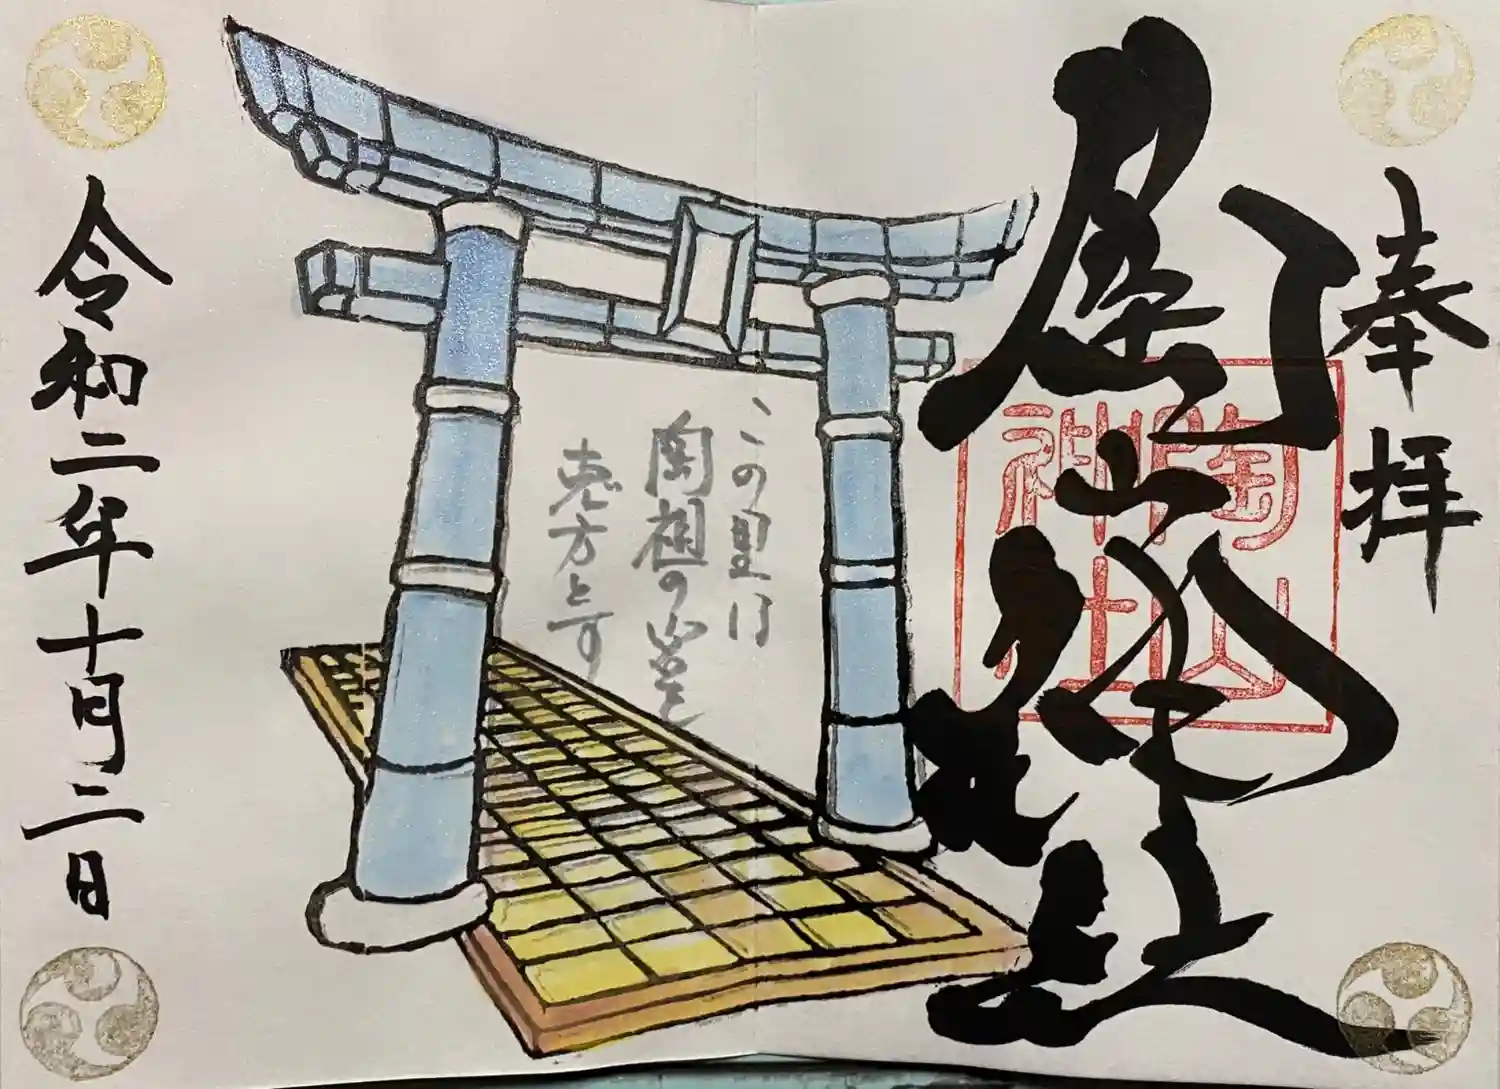 奉拝
陶山神社
陶山
神社
この里は
陶祖の宮を
恵方とす
令和二年十月二日